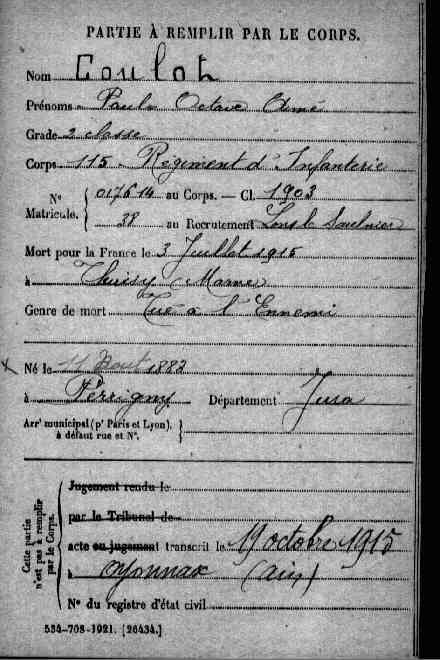 PARTIE À REMPLIR PAR LE CORPS.
Nom Coulot
Prénoms Paul Octave Aimé
Grade 2 classe
Corps 115 Régiment d'Infanterie
N° Matricule. 017614 au Corps. — Cl. 1903
38 au Recrutement Lons l Saulnier
Mort pour la France le 3 Juillet 1915
à Thuisy (Marne)
Genre de mort Tué à l'Ennemi
Né le Aout 1883
à Perrigny Département Jura
Arr' municipal (p' Paris et Lyon), à défaut rue et N°.
Cette partie n'est pas à remplir par le Corps.
Jugement rendu le
par le Tribunal de
acte ou jugement transcrit le 19 octobre 1915
à Oyonnax (ain)
N° du registre d'état civil
534-708-1921. [26434.]